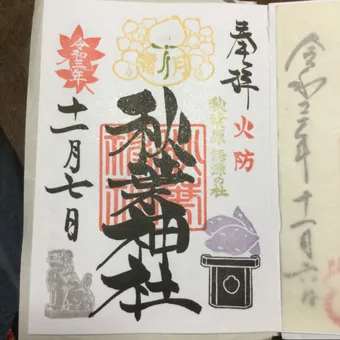 奉拝
火防
秋葉原 語源の社
秋葉神社
令和三年
十一月七日
令和三年十一月六日